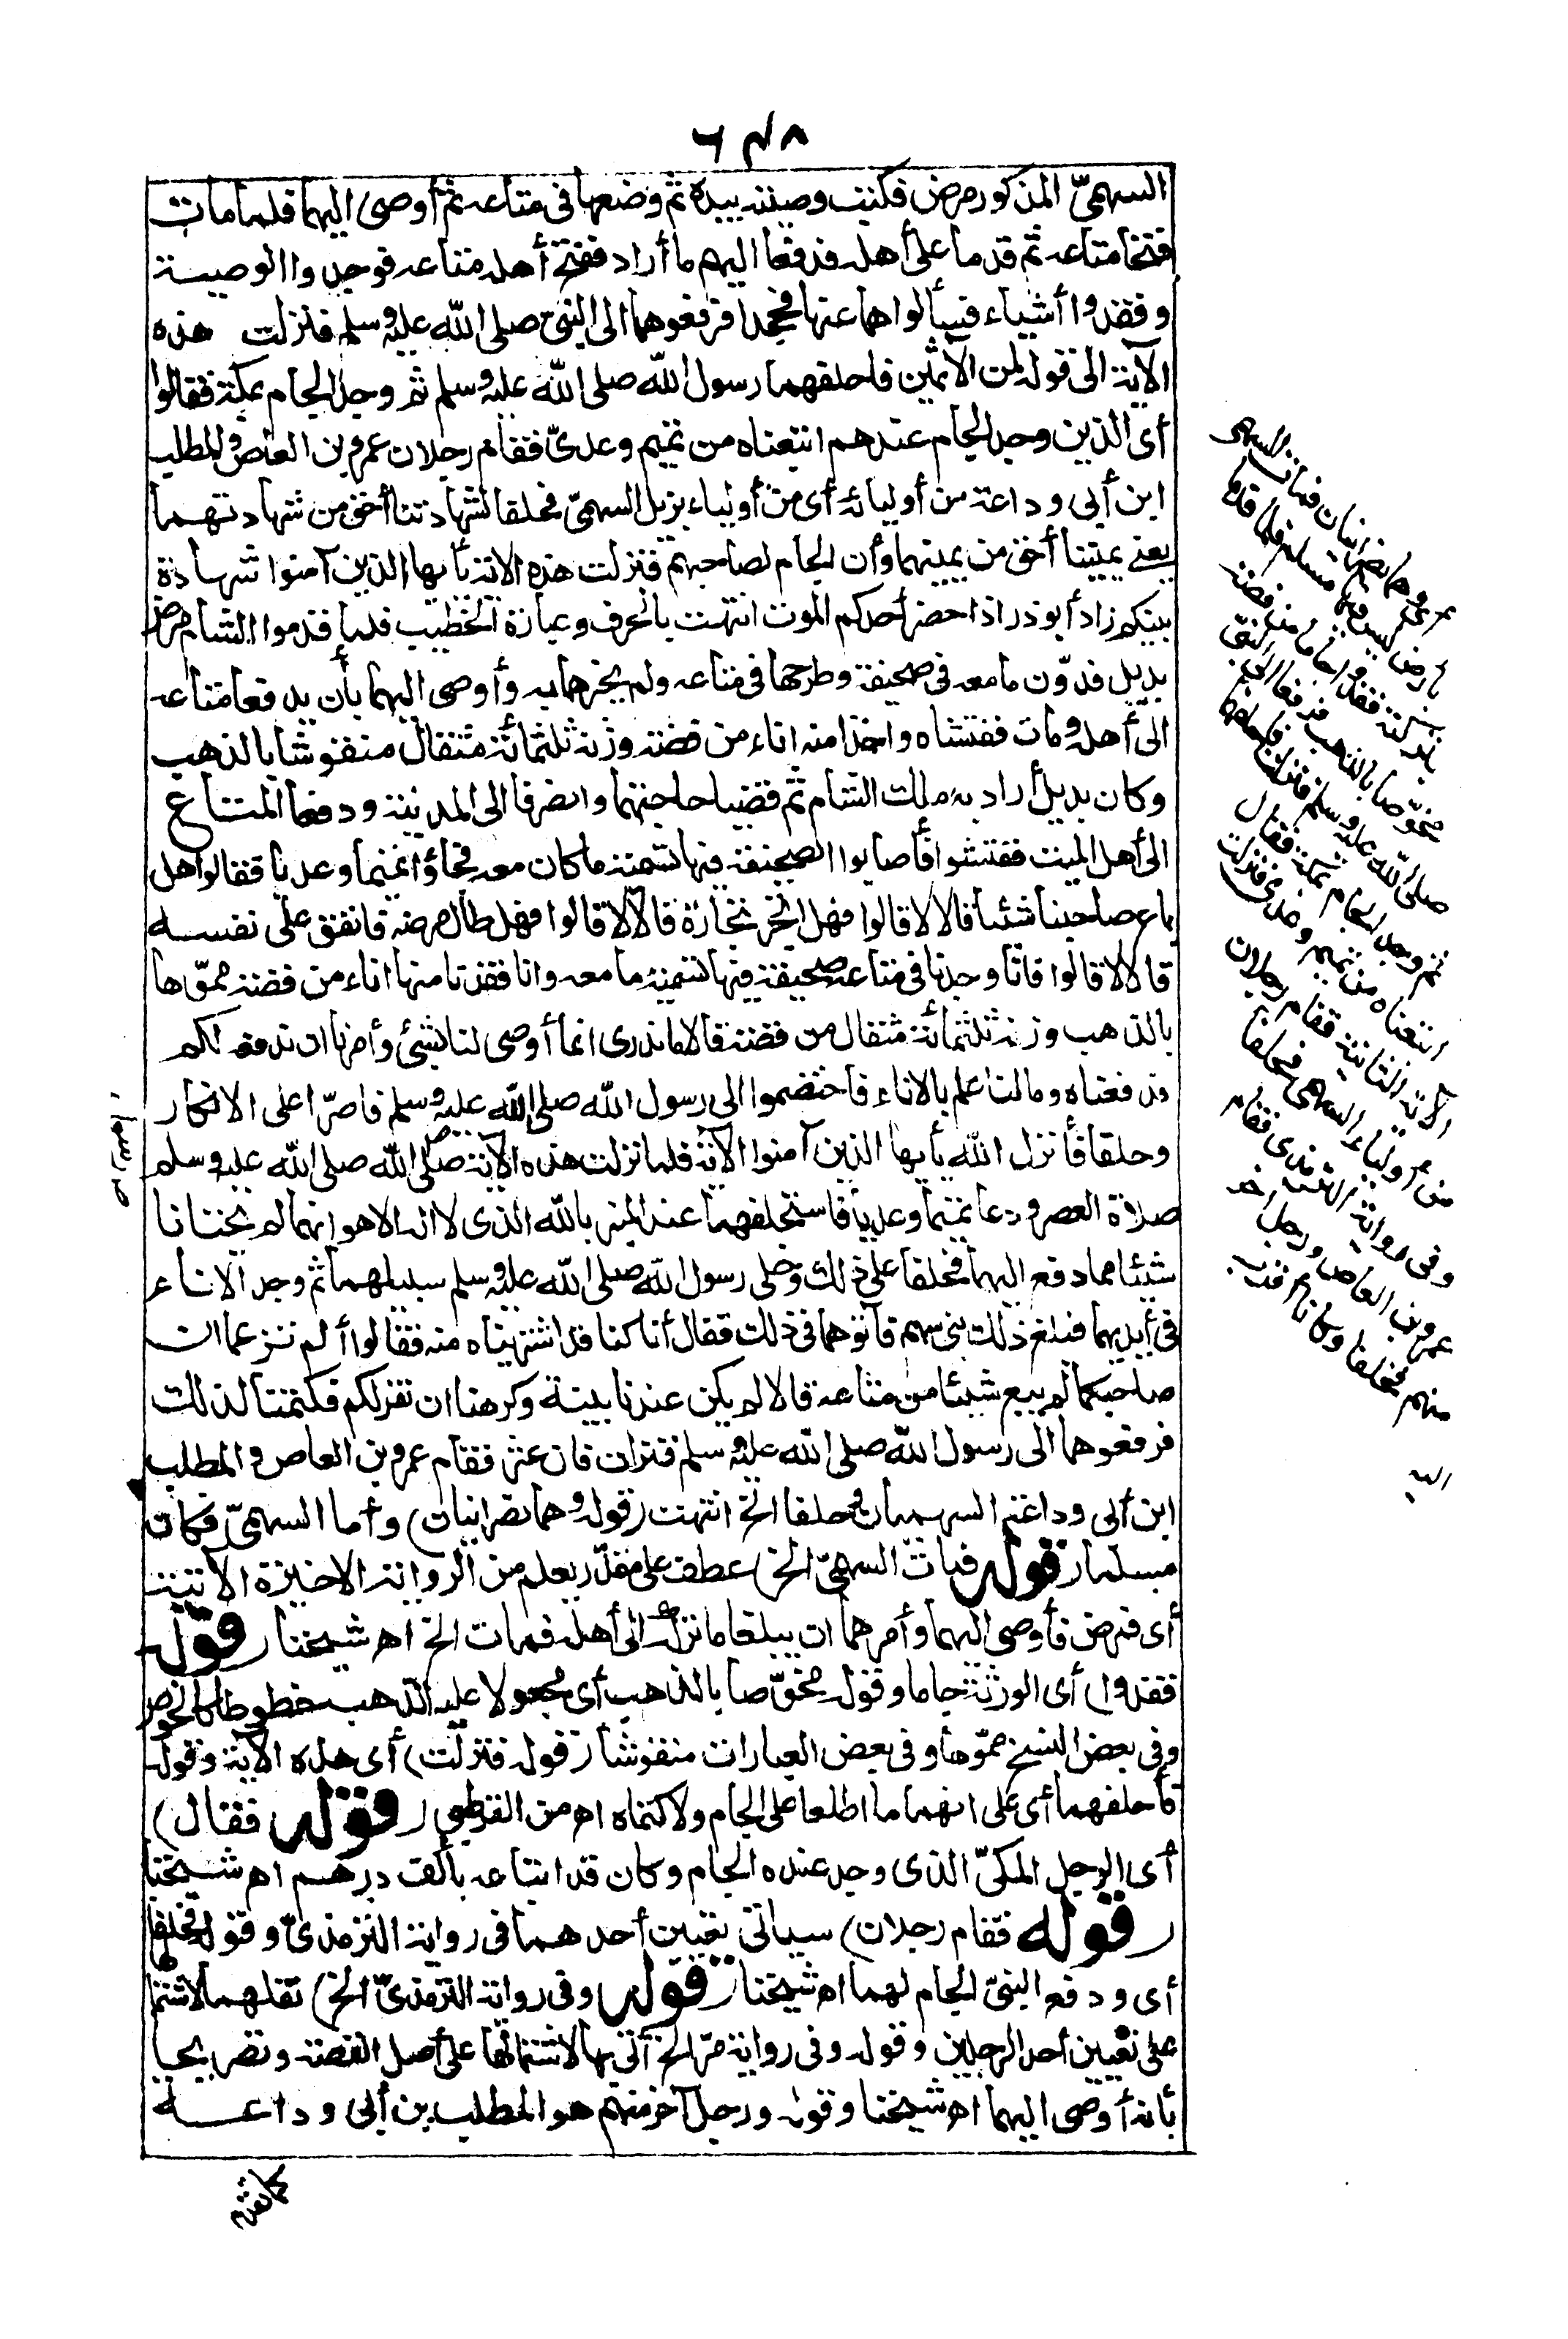 ٦٣٨
السهميّ المذكور مرض فكتب وصيته بيده ثم وضعها في متاعه ثم أوصى اليهما فلما مات
فتحا متاعه ثم قدما على أهله فدفعا اليهم ما أراد ففتح أهله متاعه فوجدوا الوصية
وفقدوا أشياء فسألوا هما عنها فجحدا فرفعوهما الى النبيّ صلى الله عليه وسلم فنزلت هذه
الآية الى قوله لمن الآثمين فاحلفهما رسول الله صلى الله عليه وسلم ثم وجد الجام بمكة فقالوا
أى الذين وجد الجام عندهم ابتعناه من تميم وعدىّ فقام رجلان عمرو بن العاص والمطلب
ابن أبي وداعة من أوليائه أى من أولياء بزيل السهميّ فحلفا لشهادتنا أحق من شهادتهما
يعني يميننا أحق من يمينهما وأن الجام لصاحبهم فنزلت هذه الآية يا أيها الذين آمنوا شهادة
بينكم زاد أبو ذر اذا حضر أحدكم الموت انتهت بالحرف وعبارة الخطيب فلما قدموا الشام مرض
بديل فدوّن ما معه في صحيفة وطرحها في متاعه ولم يخبرهما به وأوصى اليهما بأن يدفعا متاعه
الى أهله ومات ففتشاه وأخذا منه اناء من فضة وزنه ثلثمائة مثقال منقوشا بالذهب
وكان بديل أراد به ملك الشام ثم قضيا حاجتهما وانصرفا الى المدينة ودفعا المتاع
الى أهل الميت ففتشوا فأصابوا الصحيفة فيها تسمية ما كان معه فجاؤا تميما وعديا فقالوا هل
باع صاحبنا شيئا قالا لا قالوا فهل اتجر تجارة قالا لا قالوا فهل طال مرضه فانفق على نفسه
قالا لا قالوا فانا وجدنا في متاعه صحيفة فيها تسمية ما معه وانا فقدنا منها اناء من فضة مموّها
بالذهب وزنه ثلثمائة مثقال من فضة قالا ما ندرى انما أوصى لنا بشئ وأمرنا ان ندفعه لكم
فدفعناه وما لنا علم بالاناء فاختصموا الى رسول الله صلى الله عليه وسلم فاصرّا على الانكار
وحلفا فأنزل الله يا أيها الذين آمنوا الآية فلما نزلت هذه الآية صلى الله صلى الله عليه وسلم
صلاة العصر ودعا تميما وعديا فاستحلفهما عند المنبر بالله الذى لا اله الا هو انهما لم يختانا
شيئا مما دفع اليهما فحلفا على ذلك وخلى رسول الله صلى الله عليه وسلم سبيلهما ثم وجد الاناء
في أيديهما فبلغ ذلك بني سهم فأتوهما في ذلك فقال أنا كنا قد اشتريناه منه فقالوا ألم تزعما ان
صاحبكما لم يبع شيئا من متاعه قالا لم يكن عندنا بينة وكرهنا ان نقر لكم فكتمنا لذلك
فرفعوهما الى رسول الله صلى الله عليه وسلم فنزلت فان عثر فقام عمرو بن العاص والمطلب
ابن أبي وداعة السهميان فحلفا الخ انتهت (قوله وهما نصرانيان) وأما السهميّ فكان
مسلما (قوله فمات السهميّ الخ) عطف على مقدّر يعلم من الرواية الاخيرة الآتية
أى فمرض فأوصى اليهما وأمرهما ان يبلغا ما ترك الى أهله فمات الخ اهـ شيخنا (قوله
ففقدوا) أى الورثة جاما وقوله مخوّصا بالذهب أى مجعولا عليه الذهب خطوطا كالخوص
وفي بعض النسخ مموّها وفي بعض العبارات منقوشا (قوله فنزلت) أى هذه الآية وقوله
فأحلفهما أى على انهما ما اطلعا على الجام ولا كتماه اهـ من القرطبي (قوله فقال)
أى الرجل المكيّ الذى وجد عنده الجام وكان قد ابتاعه بألف درهم اهـ شيخنا
(قوله فقام رجلان) سيأتي تعيين أحدهما في رواية الترمذيّ وقوله فحلفا
أى ودفع النبيّ الجام لهما اهـ شيخنا (قوله وفي رواية الترمذيّ الخ) نقلهما لاشتمالها
على تعيين أحد الرجلين وقوله وفي رواية مرّ الخ أتى بها لاشتمالها على أصل القصة وتصريحها
بأنه أوصى اليهما اهـ شيخنا وقوله ورجل آخر منهم هو المطلب بن أبي وداعـه
كما تقدم
وهما نصرانيان فمات السهمي
بارض ليس فيها مسلم فلما قدما
بتركته فقدوا جاما من فضة
مخوّصا بالذهب فرفعا الى النبيّ
صلى الله عليه وسلم فنزلت فاحلفهما
ثم وجد الجام بمكة فقال
ابتعناه من تميم وعدي فنزلت
الآية الثانية فقام رجلان
من أولياء السهمي فحلفا
وفي رواية الترمذي فقام
عمرو بن العاص ورجل آخر
منهم فحلفا وكانا أقرب
اليه
رسول